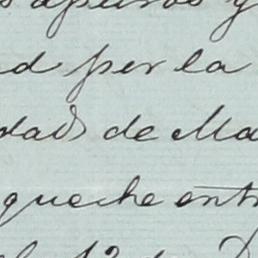 apuros y
d per la
dad de Ma
que che entr